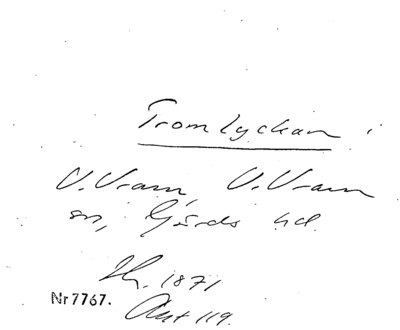 Tromlyckan i
V. Vram, V. Vram
sn, Gärds hd.
Sk. 1871
Nr 7767.
Akt 119.